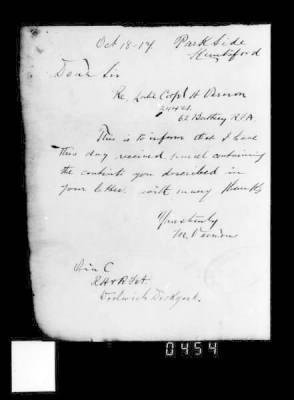 Oct 18-17 Park Side
Dear Sir
Re. late Corpl H Vernon
62 Battery R F A
This is to inform that I have
this day received parcel containing
the contents you described in
your letter with many thanks
Yours truly
M Vernon
Woolwich Dockyard.
0454